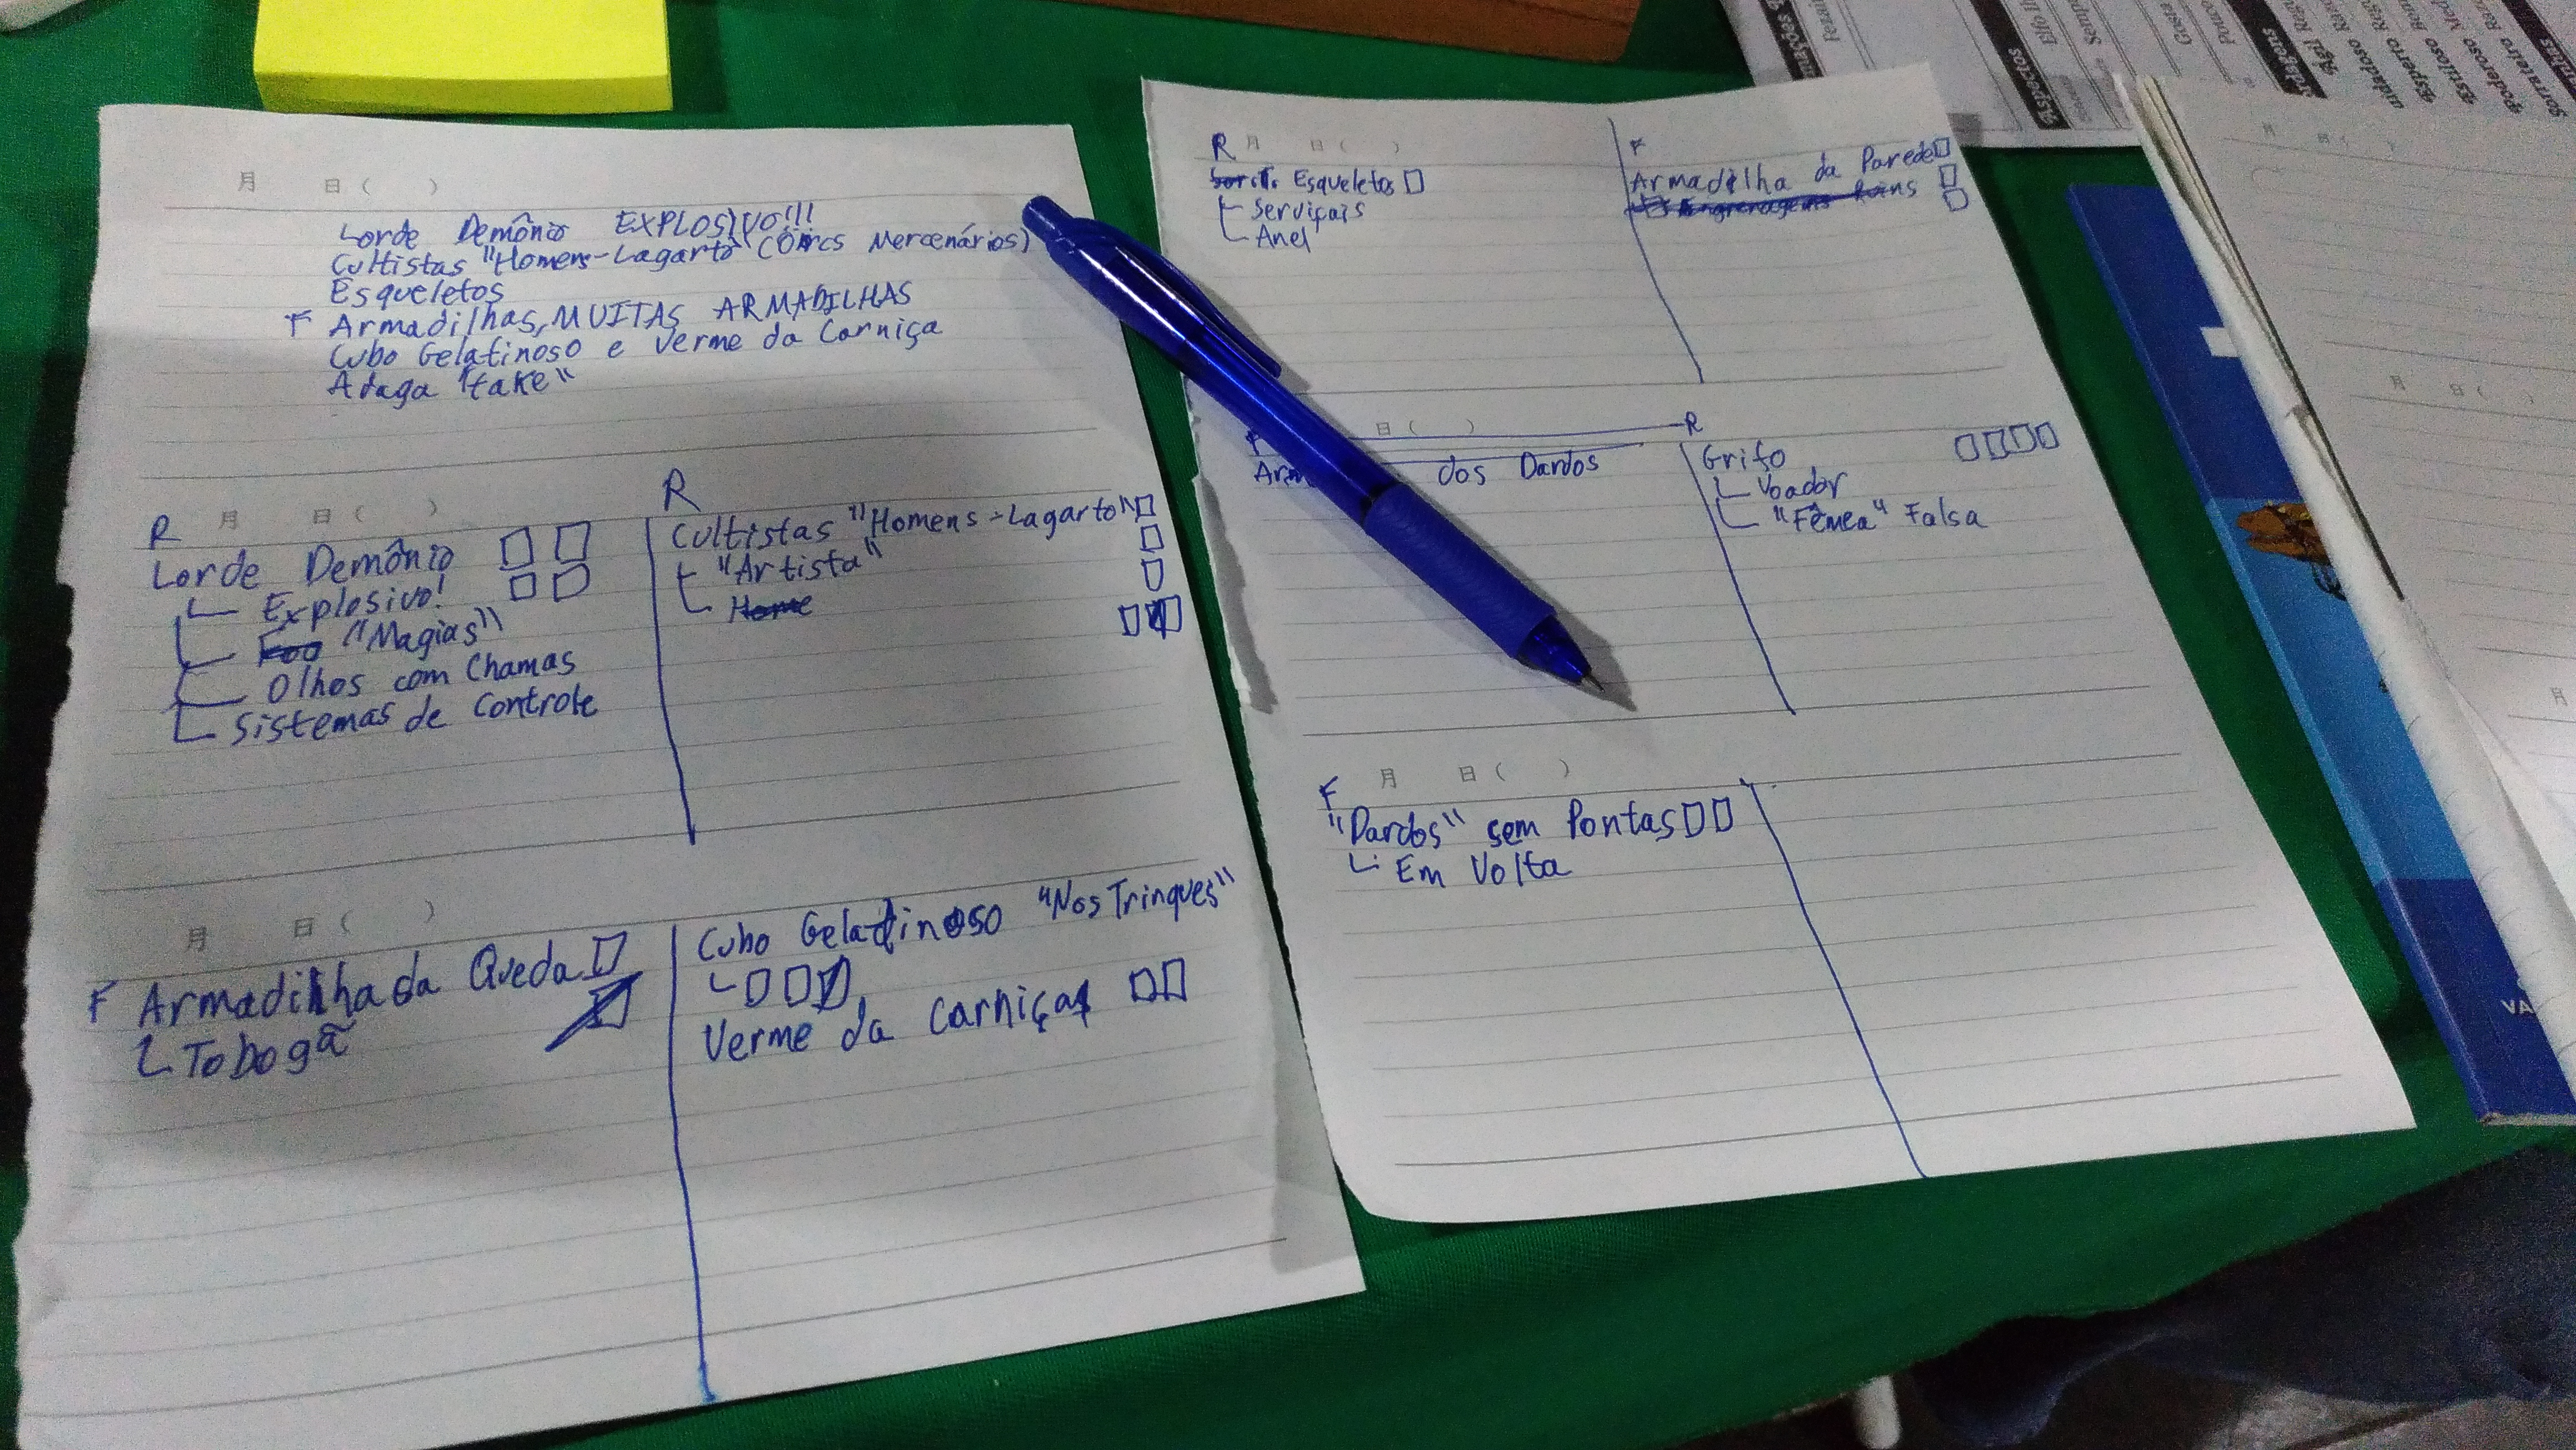 月 日 ( )
Lorde Demônio EXPLOSIVO!!!
Cultistas "Homens-Lagarto" (Orcs Mercenários)
Esqueletos
F Armadilhas, MUITAS ARMADILHAS
Cubo Gelatinoso e Verme da Carniça
Adaga "fake"
R 月 日 ( )
Lorde Demônio
Explosivo!
"Magias"
Olhos com Chamas
Sistemas de Controle
R
Cultistas "Homens-Lagarto"
"Artista"
Home
月 日 ( )
F Armadilha da Queda
Tobogã
Cubo Gelatinoso "Nos Trinques"
Verme da Carniça
R 月 日 ( )
Esqueletos
Serviçais
Anel
F
Armadilha da Parede
日 ( )
dos Dardos
R
Grifo
Voador
"Fêmea" Falsa
F 月 日 ( )
"Dardos" sem Pontas
Em Volta
Aspectos
Elfo
Gosta
Pouco
Ágil
VA
月 日 ( )
月 日 ( )
月